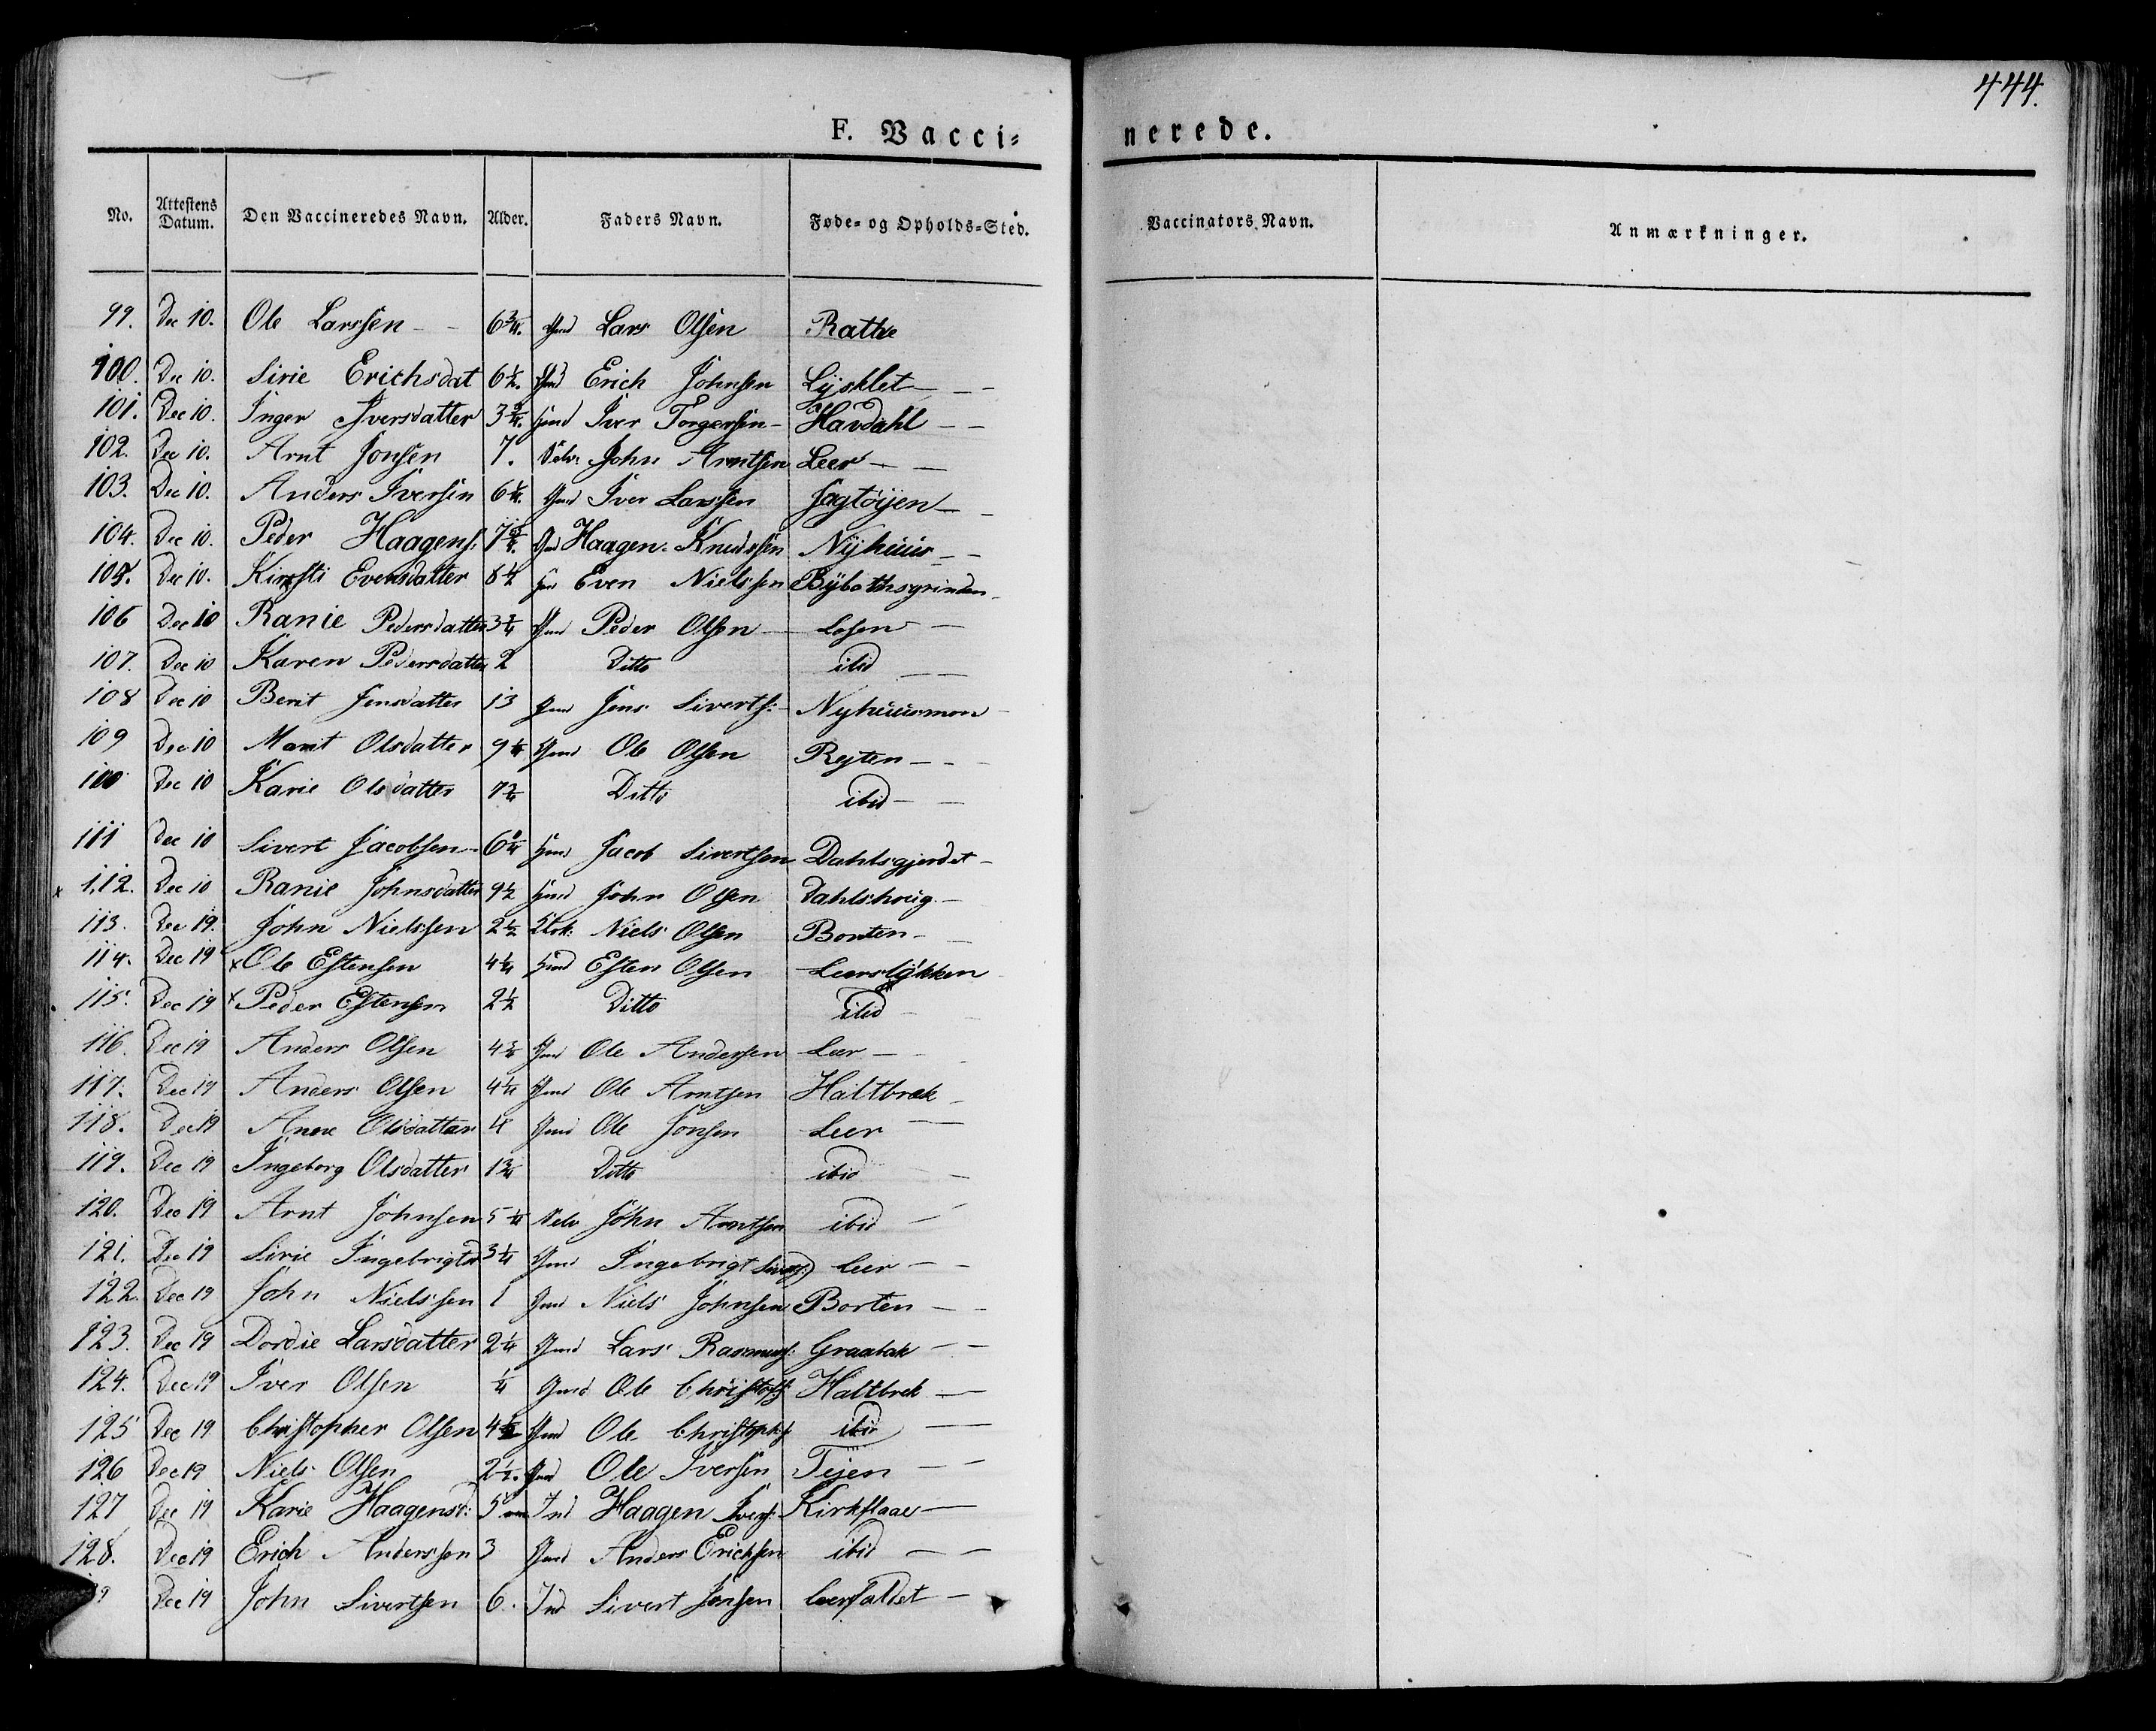 444.
F. Vacci- nerede.
No. Attestens Datum. Den Vaccineredes Navn. Alder. Faders Navn. Føde- og Opholds-Sted. Vaccinators Navn. Anmærkninger.
99. Dec 10. Ole Larssen 6¾. Gmd Lars Olsen Rathe
100. Dec 10. Sirie Erichsdat 6½. Gmd Erich Johnsen Lysklet
101. Dec 10. Inger Iversdatter 3¾. Hmd Iver Torgersen Havdahl
102. Dec 10. Arnt Jonsen 7. Selv: John Arntsen Leer
103. Dec 10. Anders Iversen 6¼. Gmd Iver Larssen Fagtøyen
104. Dec 10. Peder Haagens: 7¾. Gmd Haagen Knudssen Nyhuus
105. Dec 10. Kirsti Evensdatter 8½ Even Nielssen Bybothsgrinden
106 Dec 10 Ranie Pedersdatter 3¾ Gmd Peder Olsen Losen
107. Dec 10 Karen Pedersdatter 2 Ditto ibid
108 Dec 10 Berit Jensdatter 13 Gmd Jens Siverts: Nyhuusmoen
109 Dec 10 Marit Olsdatter 9¼ Gmd Ole Olsen Rejten
110 Dec 10 Karie Olsdatter 7¾ Ditto ibid
111 Dec 10 Sivert Jacobsen 6¼ Hmd Jacob Sivertsen Dahlsgjerdet
x 112. Dec 10 Ranie Johnsdatter 9½ Hmd John Olsen Dahlshoug
113. Dec 19. John Nielssen 2½ Niels Olsen Borten
114. Dec 19 x Ole Estensen 4¼ Hmd Esten Olsen Leersløkken
115. Dec 19 x Peder Estensen 2½ Ditto ibid
116. Dec 19 Anders Olsen 4¾ Gmd Ole Andersen Leer
117. Dec 19 Anders Olsen 4¼ Gmd Ole Arntsen Haltbræk
118. Dec 19 Anne Olsdatter 4 Gmd Ole Jonsen Leer
119. Dec 19 Ingeborg Olsdatter 1¾ Ditto ibid
120. Dec 19 Arnt Johnsen 5¼ Selv John Arntsen ibid
121. Dec 19 Sirie Ingebrigtsd 3¼ Gmd Ingebrigt Leer
122. Dec 19 John Nielssen 1 Gmd Niels Johnsen Borten
123. Dec 19 Dordie Larsdatter 2¼ Gmd Lars Rasmuss: Graabak
124. Dec 19 Iver Olsen ¼ Gmd Ole Christophs Haltbræk
125 Dec 19 Christopher Olsen 4½ Gmd Ole Christophs ibid
126 Dec 19 Niels Olsen 2½. Gmd Ole Iversen Teien
127 Dec 19 Karie Haagensd: 5 Ind Haagen Ivers: Kirkflaae
128. Dec 19 Erich Anderssen 3 Gmd Anders Erichsen ibid
Dec 19 John Sivertsen 6. Ind Sivert Jonsen Leerfaldet